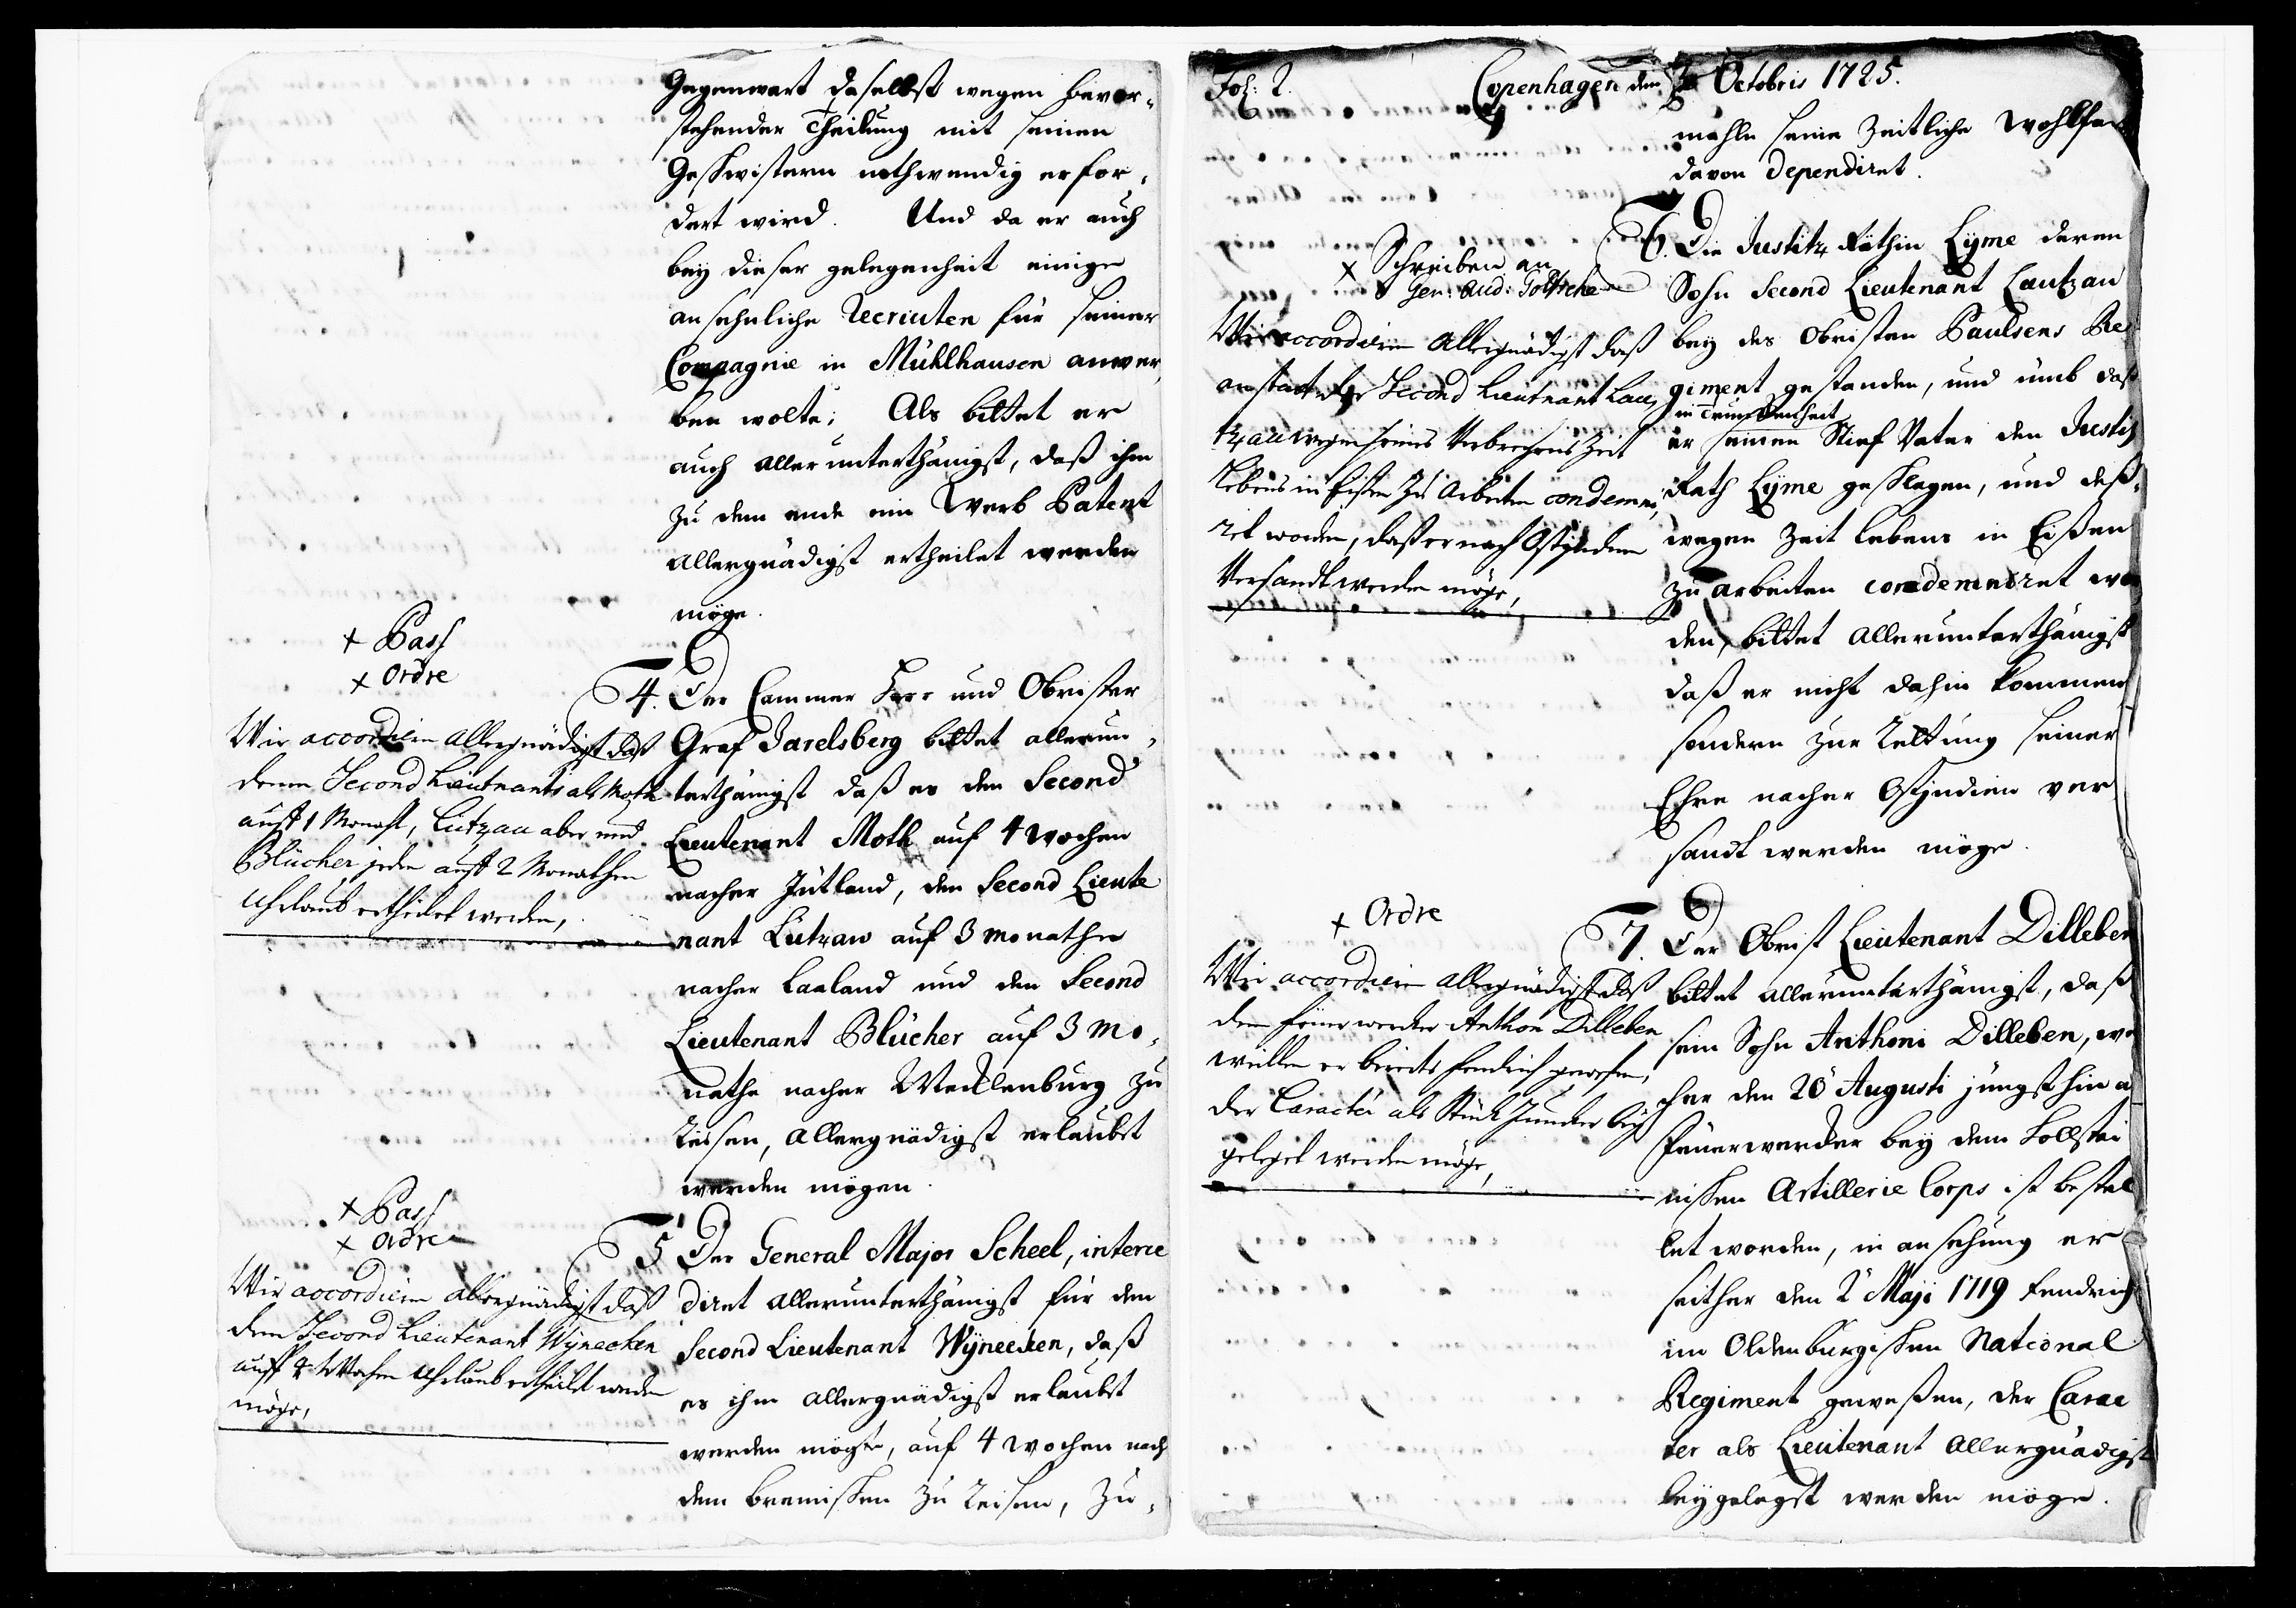 Gegenwart daselbst wegen bevor-
stehender Theilung mit seinen
Geschwistern nothwendig erfor-
dert wird. Und da er auch
bey dieser gelegenheit einige
ansehnliche Recruten für seiner
Compagnie in Mühlhausen anwer-
ben wolte; Als bittet er
auch allerunterthänigst, daß ihm
zu dem ende ein Werb Patent
allergnädigst ertheilet werden
möge.
+ Pass
+ Ordre
Wir accordiren allergnädigst daß
denen Second Lieutnants als Moth
auff 1 Monaht, Lützau aber und
Blücher jeden auff 2 Monathen
Uhrlaub ertheilet werden,
4. Der Cammer Herr und Obrister
Graf Jarelsberg bittet allerun-
terthänigst daß es den Second
Lieutenant Moth auf 4 wochen
nacher Jütland, den Second Lieute
nant Lützaw auf 3 monathe
nacher Laaland und den Second
Lieutenant Blücher auf 3 Mo-
nathe nacher Mecklenburg zu
Reisen, allergnädigst erlaubt
werden mögen.
+ Pass
+ Ordre
Wir accordiren allergnädigst daß
dem Second Lieutenant Wÿnecken
auff 4 Wochen Uhrlaub ertheilet werden
möge,
5 Der General Major Scheel, interce
diret allerunterthänigst für den
Second Lieutenant Wÿnecken, daß
es ihm allergnädigst erlaubt
werden mögte, auf 4 wochen nach
dem bremischen zu Reisen, zu-
Fol: 2. Copenhagen den Octobris 1725.
mahle seine zeitliche Wohlfart
davon dependiret.
+ Schreiben an
Gen: Aud: Goltsche
Wir accordiren allergnädigst daß
anstatt der Second Lieutnant Lau-
tzau wegen seines Verbrechens Zeit
Lebens in Eisen zu Arbeiten condemni-
ret worden, daß er nach Ostjndien
Versandt werden möge,
6. Die Justitz Räthin Lÿme deren
Sohn Second Lieutenant Lautzau
bey des Obristen Paulsens Re-
giment gestanden, und umb daß
in Trunckenheit
er seinen Stief Vater den Justiz
Rath Lÿme geschlagen, und deß-
wegen Zeit lebens in Eißen
zu arbeiten condemniret wor
den, bittet allerunterthänigst
daß er nicht dahin kommen
sondern zur Rettung seiner
Ehre nacher Ostjndien ver
sandt werden möge.
+ Ordre
Wir accordiren allergnädigst daß
dem feuerwercker Anthon Dilleben
weillen er bereits fendrich gewesen,
der Caracter als Stück Juncker bey
geleget werden möge,
7. Der Obrist Lieutenant Dilleben
bittet allerunterthänigst, daß
sein Sohn Anthoni Dilleben, wel
cher den 20 Augusti jüngst hin a
Feuerwercker bey dem Hollstei
nischen Artillerie Corps ist bestel
let worden, in ansehung er
seither den 2 Maji 1719 fendrich
im Oldenburgischen National
Regiment geweßen, der Carac
ter als Lieutenant allergnädigst
beygelegt werden möge.